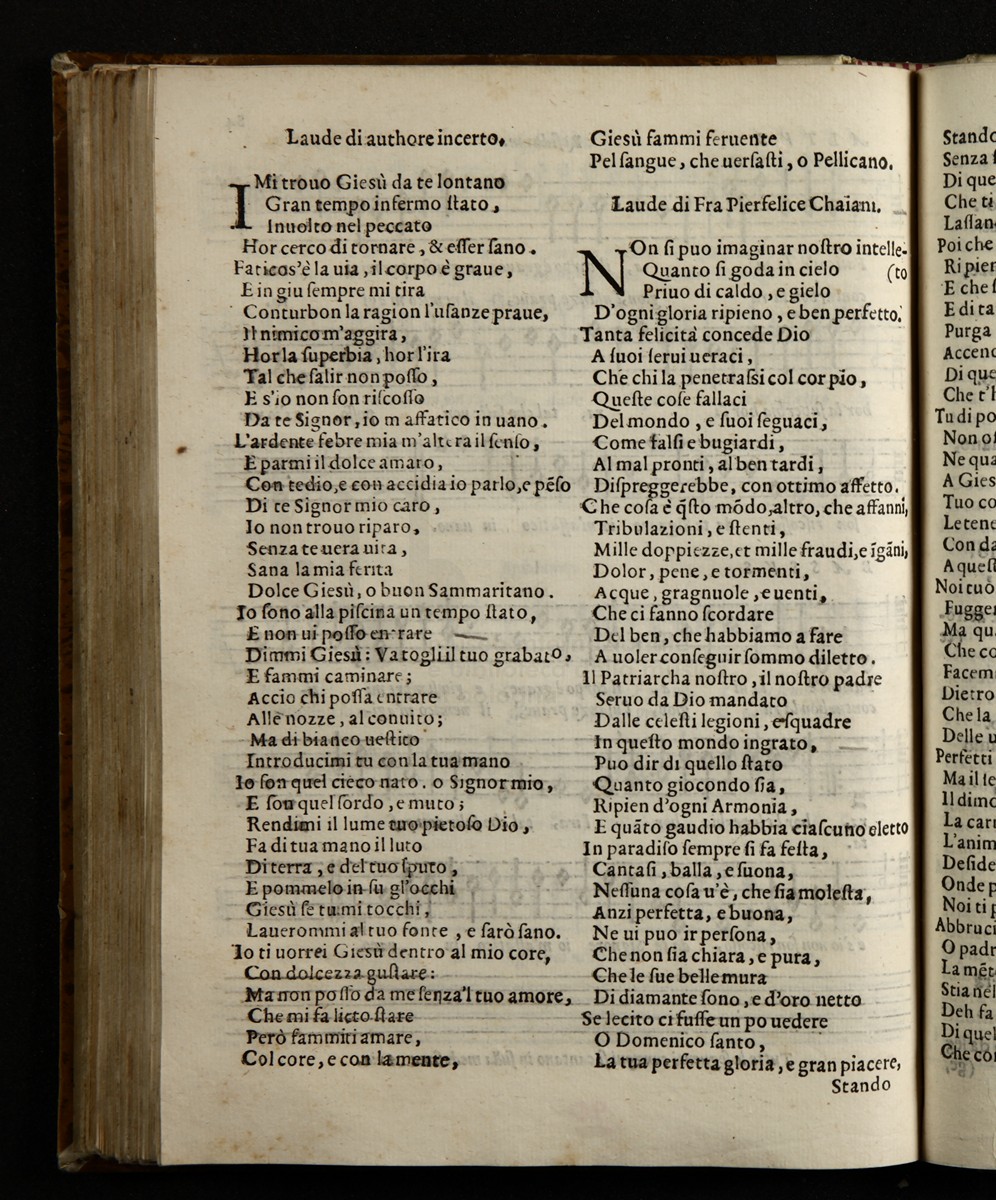 Laude di authore incerto.
I Mi trouo Giesù da te lontano
Gran tempo infermo ſtato,
Inuolto nel peccato
Hor cerco di tornare, & eſſer ſano.
Faticos'è la uia, il corpo è graue,
E in giu ſempre mi tira
Conturbon la ragion l'uſanze praue,
Il nimico m'aggira,
Hor la ſuperbia, hor l'ira
Tal che ſalir non poſſo,
E s'io non ſon riſcoſſo
Da te Signor, io m affatico in uano.
L'ardente febre mia m'altera il ſenſo,
E parmi il dolce amaro,
Con tedio, e con accidia io parlo, e pēſo
Di te Signor mio caro,
Io non trouo riparo,
Senza te uera uita,
Sana la mia ferita
Dolce Giesù, o buon Sammaritano.
Io ſono alla piſcina un tempo ſtato,
E non ui poſſo entrare
Dimmi Giesù: Va togli il tuo grabato,
E fammi caminare;
Accio chi poſſa entrare
Alle nozze, al conuito;
Ma di bianco ueſtito
Introducimi tu con la tua mano
Io ſon quel cieco nato. o Signor mio,
E ſon quel ſordo, e muto;
Rendimi il lume tuo pietoſo Dio,
Fa di tua mano il luto
Di terra, e del tuo ſputo,
E pommelo in ſu gl'occhi
Giesù ſe tu mi tocchi,
Lauerommi al tuo fonte, e ſarò ſano.
Io ti uorrei Giesù dentro al mio core,
Con dolcezza guſtare:
Ma non poſſo da me ſenza'l tuo amore,
Che mi fa licto ſtare
Però fammiti amare,
Col core, e con la mente,
Giesù fammi feruente
Pel ſangue, che uerſaſti, o Pellicano.
Laude di Fra Pierfelice Chaiani.
NOn ſi puo imaginar noſtro intelle-
Quanto ſi goda in cielo (to
Priuo di caldo, e gielo
D'ogni gloria ripieno, e ben perfetto.
Tanta felicità concede Dio
A ſuoi ſerui ueraci,
Che chi la penetraſsi col cor pio,
Queſte coſe fallaci
Del mondo, e ſuoi ſeguaci,
Come falſi e bugiardi,
Al mal pronti, al ben tardi,
Diſpreggerebbe, con ottimo affetto.
Che coſa è q̄ſto mōdo, altro, che affanni,
Tribulazioni, e ſtenti,
Mille doppiezze, et mille fraudi, e īgāni,
Dolor, pene, e tormenti,
Acque, gragnuole, e uenti,
Che ci fanno ſcordare
Del ben, che habbiamo a fare
A uoler conſeguir ſommo diletto.
Il Patriarcha noſtro, il noſtro padre
Seruo da Dio mandato
Dalle celeſti legioni, eſquadre
In queſto mondo ingrato,
Puo dir di quello ſtato
Quanto giocondo ſia,
Ripien d'ogni Armonia,
E quāto gaudio habbia ciaſcuno eletto
In paradiſo ſempre ſi fa feſta,
Cantaſi, balla, e ſuona,
Neſſuna coſa u'è, che ſia moleſta,
Anzi perfetta, e buona,
Ne ui puo ir perſona,
Che non ſia chiara, e pura,
Che le ſue belle mura
Di diamante ſono, e d'oro netto
Se lecito ci fuſſe un po uedere
O Domenico ſanto,
La tua perfetta gloria, e gran piacere,
Stando
Stando
Senza
Di que
Che ti
Laſſan
Poi che
Ripien
E che
E di ta
Purga
Accend
Di que
Che t'
Tu di po
Non
Ne qua
A Gies
Tuo co
Le tene
Con da
A queſt
Noi tuo
Fugge
Ma qu
Che co
Facem
Dietro
Che la
Delle u
Perfetti
Ma il
Il dimo
La car
L'anim
Deſide
Onde p
Noi ti
Abbruci
O padr
La mēt
Stia nel
Deh fa
Di quel
Che con